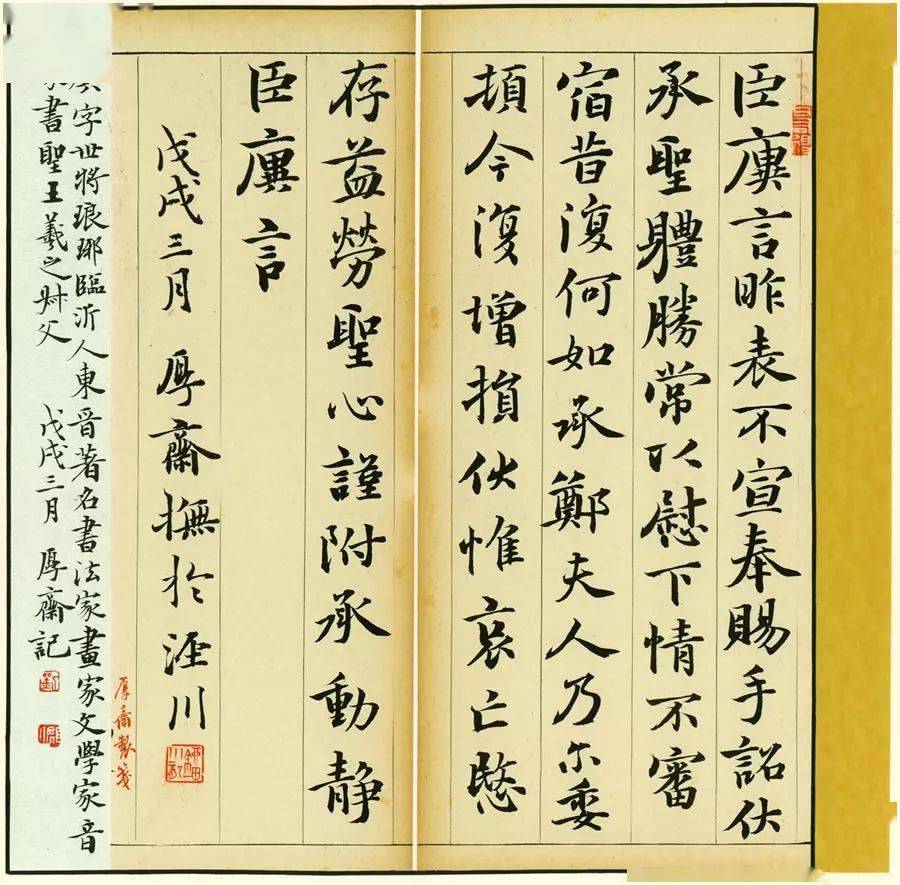 臣廙言昨表不宣奉賜手詔伏
承聖體勝常以慰下情不審
宿昔復何如承鄭夫人乃尔委
頓今復增損伏惟哀亡愍
存益勞聖心謹附承動静
臣廙言
戊戌三月 厚齋撫於涇川
厚齋製箋
字世將琅琊臨沂人東晉著名書法家畫家文學家音
書聖王羲之叔父 戊戌三月 厚齋記